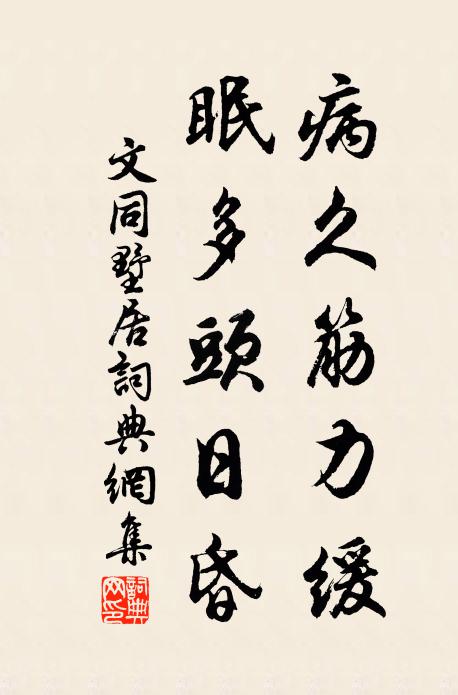 病久筋力緩
眠多頭日昏
文同墅居詞典網集
詞典网印